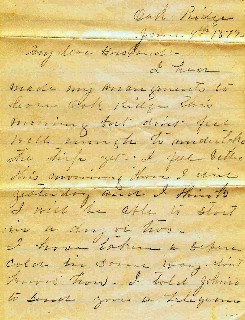 Oak Ridge
9th 187
My dear Husband
I have
made my arrangements to
leave Oak Ridge this
morning but dont feel
well enough to undertake
the trip yet. I feel better
this morning than I did
yesterday and I think
I will be able to start
in a day or two.
I have taken a severe
cold in some way dont
know how. I told
to send you a telegram